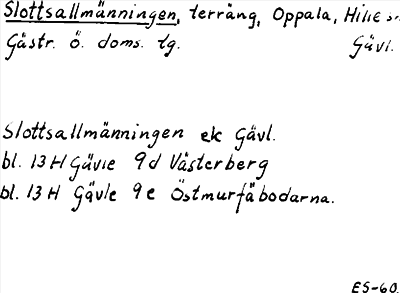 Slottsallmänningen, terräng, Oppala, Hille
Gästr. ö. doms. tg. Gävl.
Slottsallmänningen ek Gävl.
bl. 13 H Gävle 9 d Västerberg
bl. 13 H Gävle 9 e Östmurfäbodarna.
ES-60